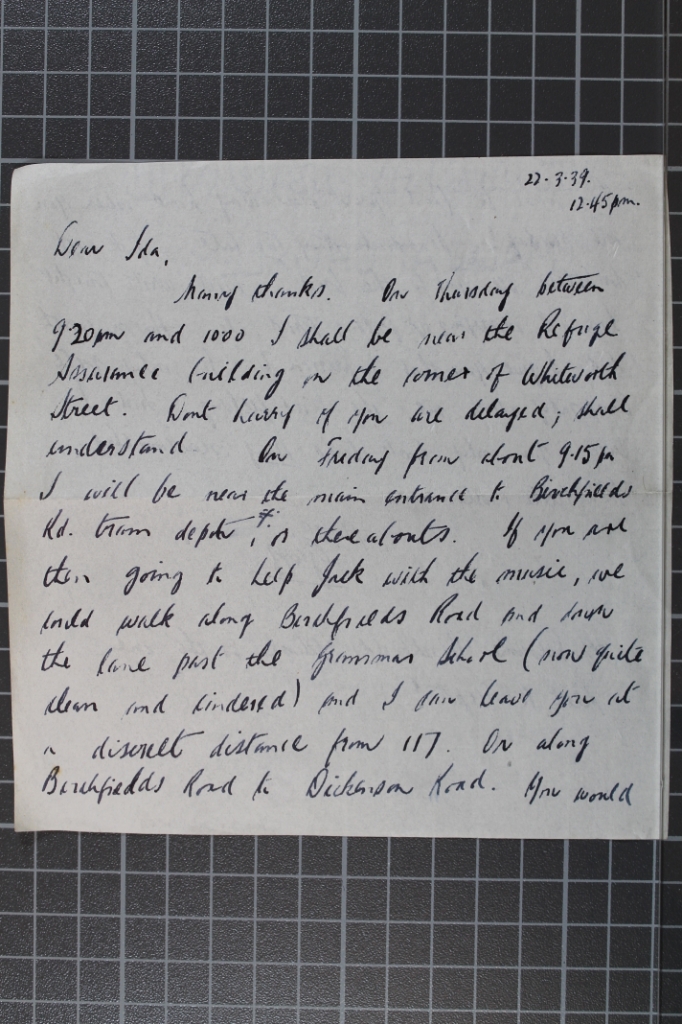 22.3.39.
12.45pm.
Dear Ida,
Many thanks. On Thursday between
9.20pm and 1000 I shall be near the Refuge
Assurance building on the corner of Whitworth
Street. Dont hurry if you are delayed; shall
understand On Friday from about 9.15pm
I will be near the main entrance to Birchfields
Rd. tram depot *, or thereabouts. If you are
then going to help Jack with the music, we
could walk along Birchfields Road and down
the lane past the Grammar School (now quite
clean and cindered) and I can leave you at
a discreet distance from 117. Or along
Birchfields Road to Dickenson Road. You would